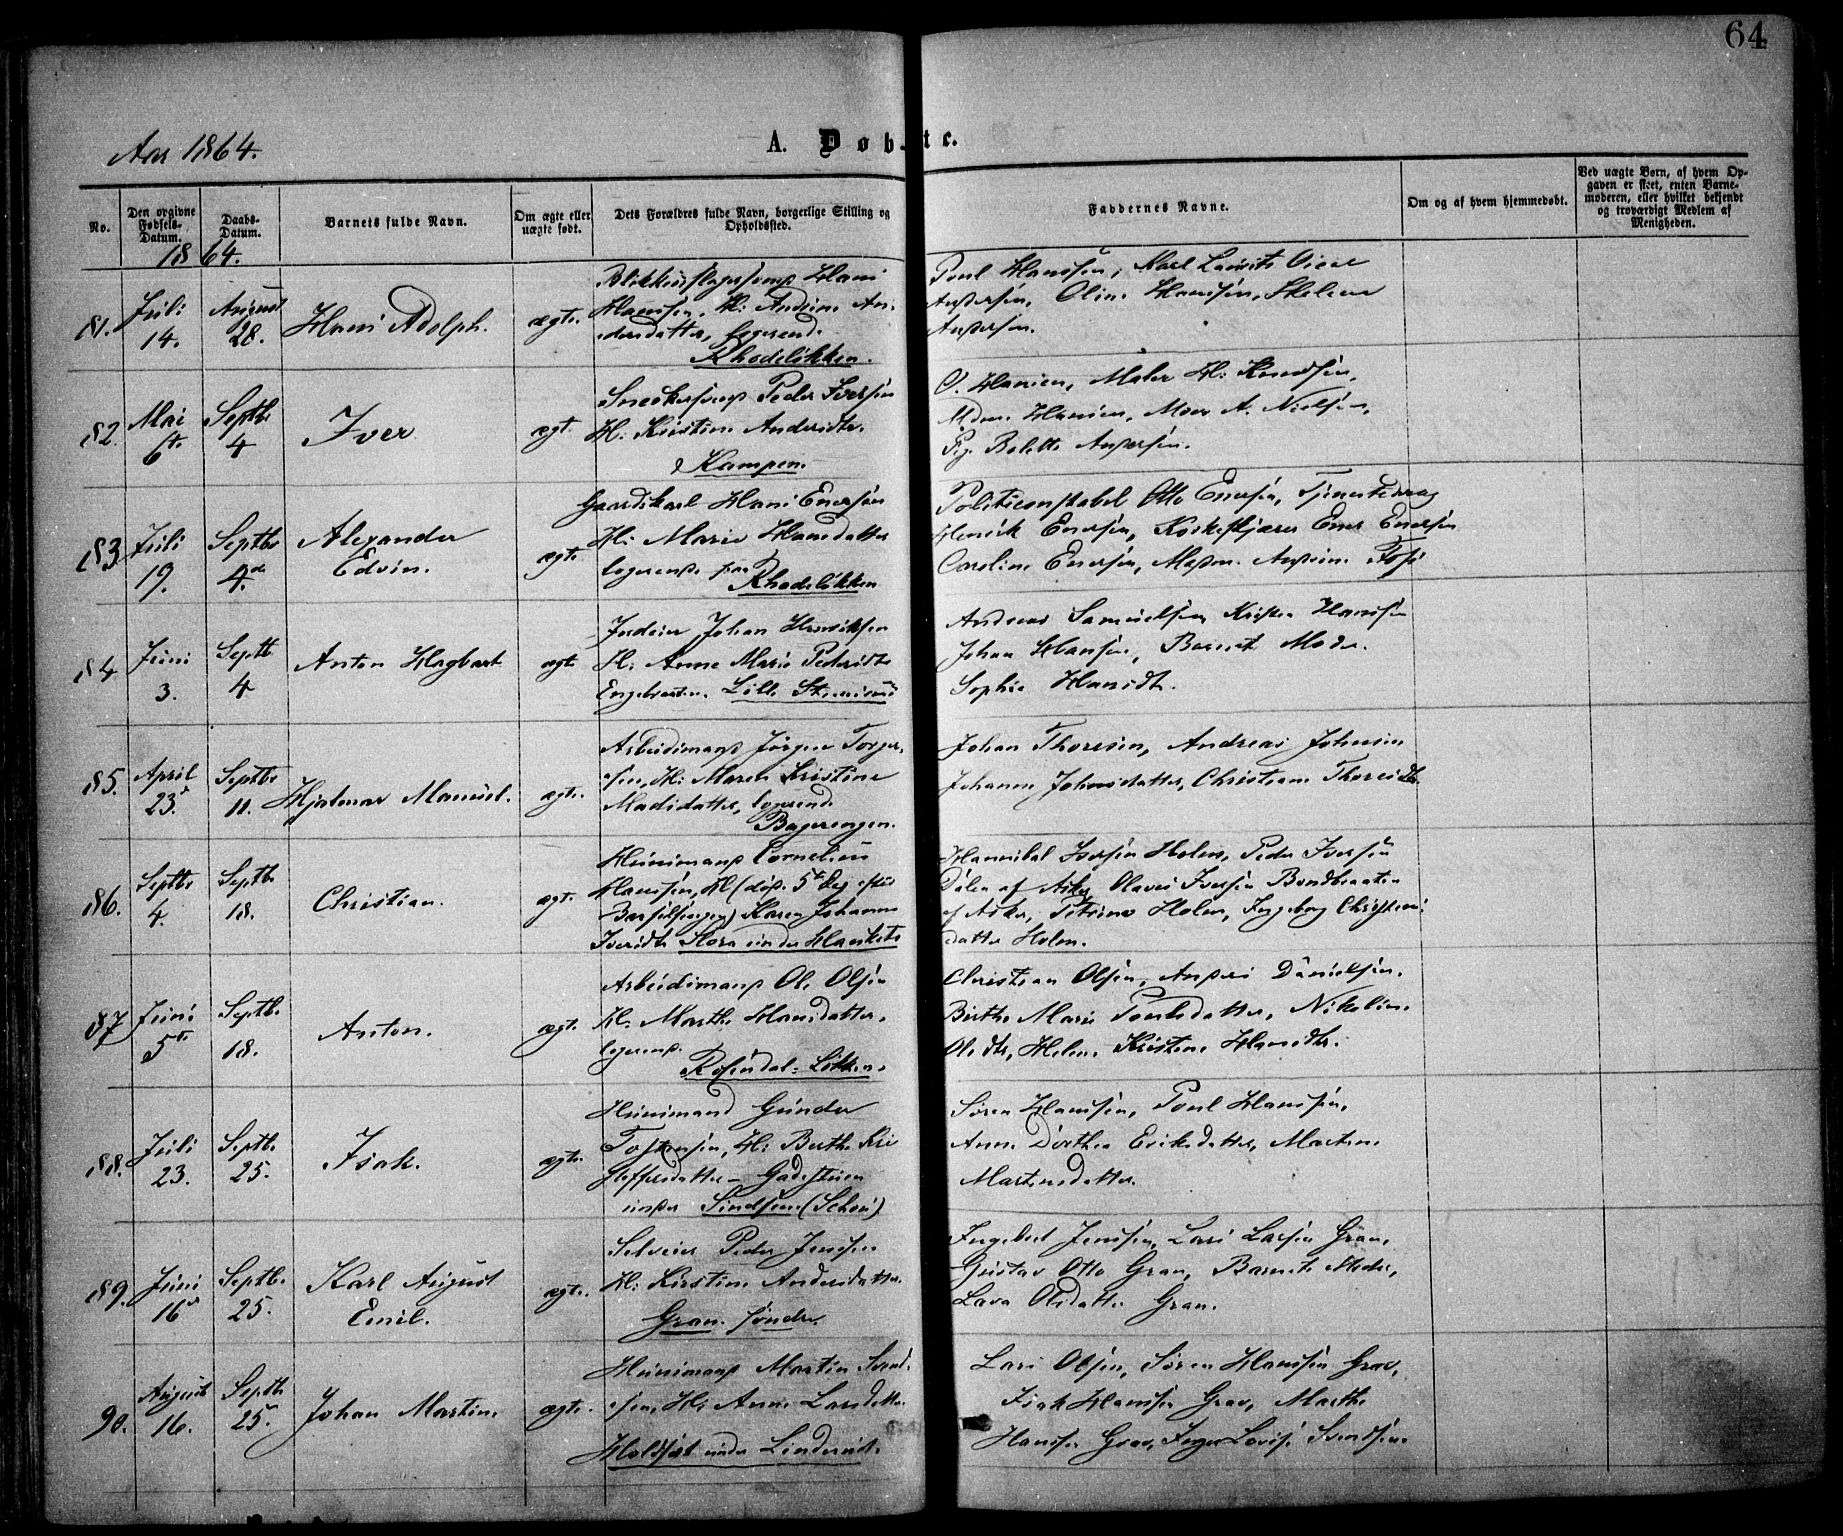 64
Aar 1864.
A. Døbte.
No.
Den opgivne Fødsels-Datum.
Daabs-Datum.
Barnets fulde Navn.
Om ægte eller uægte født.
Dets Forældres fulde Navn, borgerlige Stilling og Opholdssted.
Faddernes Navne.
Om og af hvem hjemmedøbt.
Ved uægte Børn, af hvem Opgaven er skeet, enten Barnemoderen, eller hvilket bekjendt og troværdigt Medlem af Menigheden.
1864.
81.
Juli 14.
August 28.
Hans Adolph.
ægte.
Blikkenslagersvend Hans
Hanssen, H: Andrine An-
dersdatter, logerend.
Rhodeløkken.
Poul Hanssen, Karl Laurits
Andersen, Oline Hanssen,
Andersen.
82.
Mai 6te
Septbr 4
Iver
ægt.
Snedkersvend Peder Iversen
H: Kirstine Andersdtr.
Kampen.
O. Hansen, Maler H: Knudsen,
Mdme Hansen, A. Nielsen,
Pig. Bolette Andersen.
83
Juli 19.
Septbr 4de
Alexander
Edvin.
ægte.
Gaardskarl Hans Enersen
H: Marie Hansdatter
logerende paa
Rhodeløkken
Politiconstabel Otto Enersen, Tjenestedreng
Henrik Enersen, Enersen
Caroline Enersen, Madam
84
Juni 3.
Septb 4
Anton Hagbart
ægt
Inderst Johan Henriksen
H: Anne Marie Pedersdtr
Lille
Andreas Samuelsen, Kristen Hanssen
Johan Hanssen, Barnets Moder.
Sophie Hansdtr.
85.
April 23de
Septbr 11.
Hjalmar Manuel.
ægte.
Arbeidsmand Jørgen Torger-
sen, H: Maren Kristine
Madsdatter, logerende
Bagerengen.
Johan Thoresen, Andreas Johnsen
Johanne Johnsdatter, Christiane Thoresdtr
86.
Septbr 4.
Septbr 18.
Christian.
ægte.
Huusmand Cornelius
Hanssen, H (død 5te Dag efter
Barselsengen) Karen Johanne
Iversdtr under
Hannibal Iversen Holen, Peder Iversen
Dalen af Asker, Olaves Iversen Bondbraaten
af Asker, Petrine Holen, Ingeborg Christens-
datter Holen.
87
Juni 5te
Septbr 18.
Anton.
ægte.
Arbeidsmand Ole Olsen
H: Marthe Hansdatter,
logerend.
Rosendal-Løkken.
Christian Olsen, Anders Danielsen,
Birthe Marie Poulsdatter, Nikoline
Olsdtr, Helene Kristine Hansdtr.
88.
Juli 23.
Septbr. 25.
Isak.
ægte.
Huusmand Gunder
Tostensen, H: Berthe Kri
stoffersdatter
under Sindsen
Søren Hanssen, Poul Hanssen,
Anne Dorthea Eriksdatter, Martine
Martinsdatter.
89.
Juni 16de
Septbr. 25.
Karl August
Emil.
ægte.
Selveier Peder Jenssen
H: Kirstine Andersdatter
Gran søndre.
Ingebret Jenssen, Lars Larsen Gran,
Gustav Otto Gran, Barnets Moder,
Lava Olsdatter Gran.
90.
August 16.
Septbr 25.
Johan Martin.
ægte.
Huusmand Martin Svend-
sen, H: Anne Larsdatter
under Linderud.
Lars Olsen, Søren Hanssen Grav,
Isak Hanssen Grav, Marthe
Hanssen Grav, Inger Lovise Svendsen.